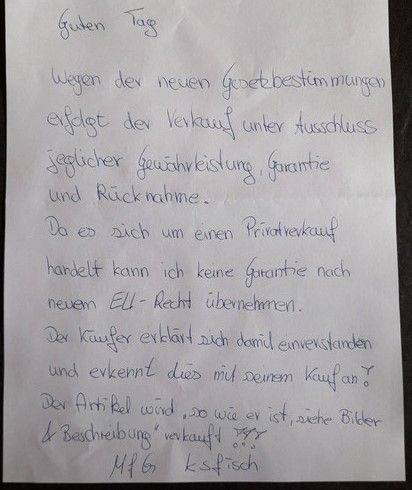 Guten Tag
Wegen der neuen Gesetzbestimmungen
erfolgt der Verkauf unter Ausschluss
jeglicher Gewährleistung, Garantie
und Rücknahme.
Da es sich um einen Privatverkauf
handelt kann ich keine Garantie nach
neuem EU-Recht übernehmen.
Der Käufer erklärt sich damit einverstanden
und erkennt dies mit seinem Kauf an!
Der Artikel wird „so wie er ist, siehe Bilder
& Beschreibung" verkauft !!!
MfG ksfisch